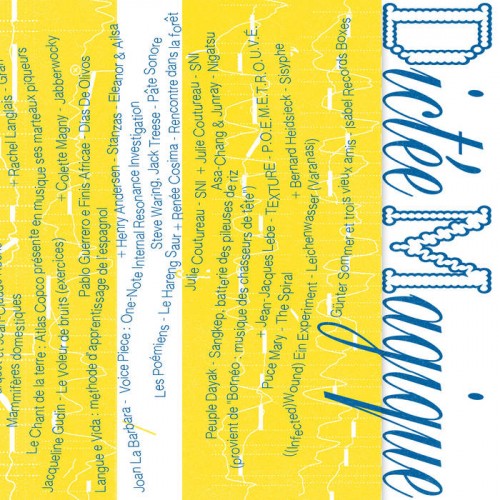 Dictée Magique
et Jean-Claude
+ Rache Langlais -
Mammifères domestiques
Le Chant de la terre : Atlas Copco présente en musique ses marteaux piqueurs
Jacqueline Gudin - Le Voleur de bruits (exercices)
+ Colette Magny - Jabberwocky
Pablo Guerrero e Finis Africae - Dias De Olivos
Langue e Vida : méthode d'apprentissage de l'espagnol
+ Henry Andersen - Stanzas - Eleanor & Alisa
Joan La Barbara - Voice Piece : One-Note Internal Resonance Investigation
Steve Waring, Jack Treese - Pâte Sonore
Les Poémiens - Le Hareng Saur + Renée Cosima - Rencontre dans la forêt
Julie Coutureau - SNI + Julie Coutureau - SNI
Asa-Chang & Junray - Nigatsu
Peuple Dayak - Sangkep, batterie des pileuses de riz
(provient de "Bornéo : musique des chasseurs de tête")
+ Jean-Jacques Lebe - TExTURE - P.O.E.M.E.T.R.O.U.V.É.
Puce Mary - The Spiral
+ Bernard Heidsieck - Sisyphe
((Infected)Wound) Ein Experiment - Leichenwasser (Varanasi)
Günter Sommer et trois vieux amis : Isabel Records Boxes